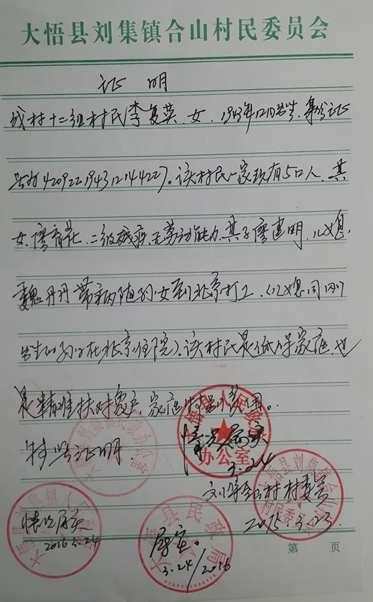 大悟县刘集镇合山村民委员会
证明
我村十二组村民李复英，女，1943年12月出生，身份证
号码420922194312144227。该村民一家现有5口人，其
女廖育花，二级残疾，无劳动能力，其子廖建明，儿媳
魏丹丹带病随孙女到北京打工（儿媳同刚
出生的孙子在北京住院）。该村民是低保家庭，也
是精准扶贫对象户，家庭特别困难。
特此证明。
情况属实
办公室
3.24
刘集合山村村委会
2016.3.23
情况属实
2016.3.24
属实。
3.24/2016
第 页